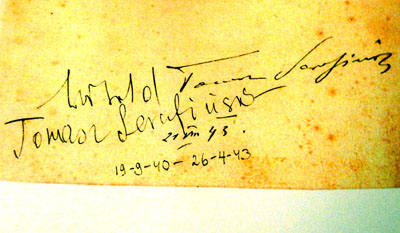 Witold Tomasz Serafiński
Tomasz Serafiński
45.
19-9-40 – 26-4-43